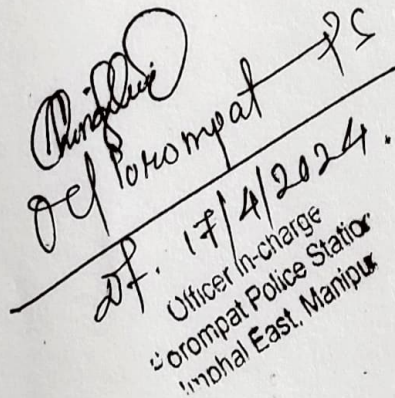 OC/Porompat PS
Dt. 17/4/2024.
Officer in-charge
Porompat Police Station
Imphal East, Manipur